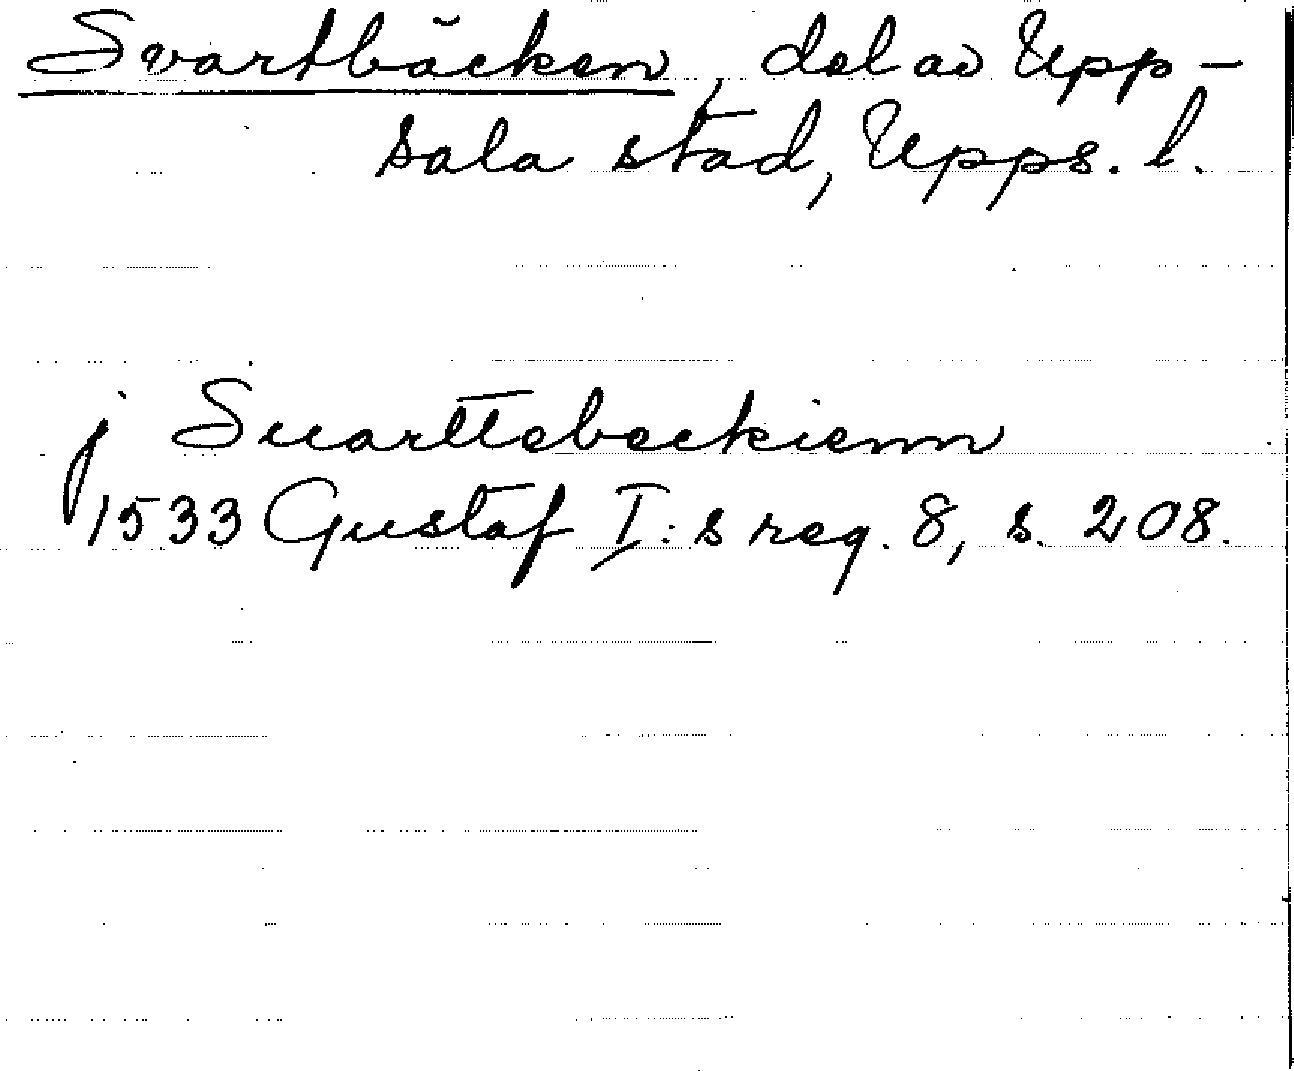 Svartbäcken, del av Upp-
sala stad, Upps. l.
j Suarttebeckienn
1533 Gustaf I:s reg. 8, s. 208.